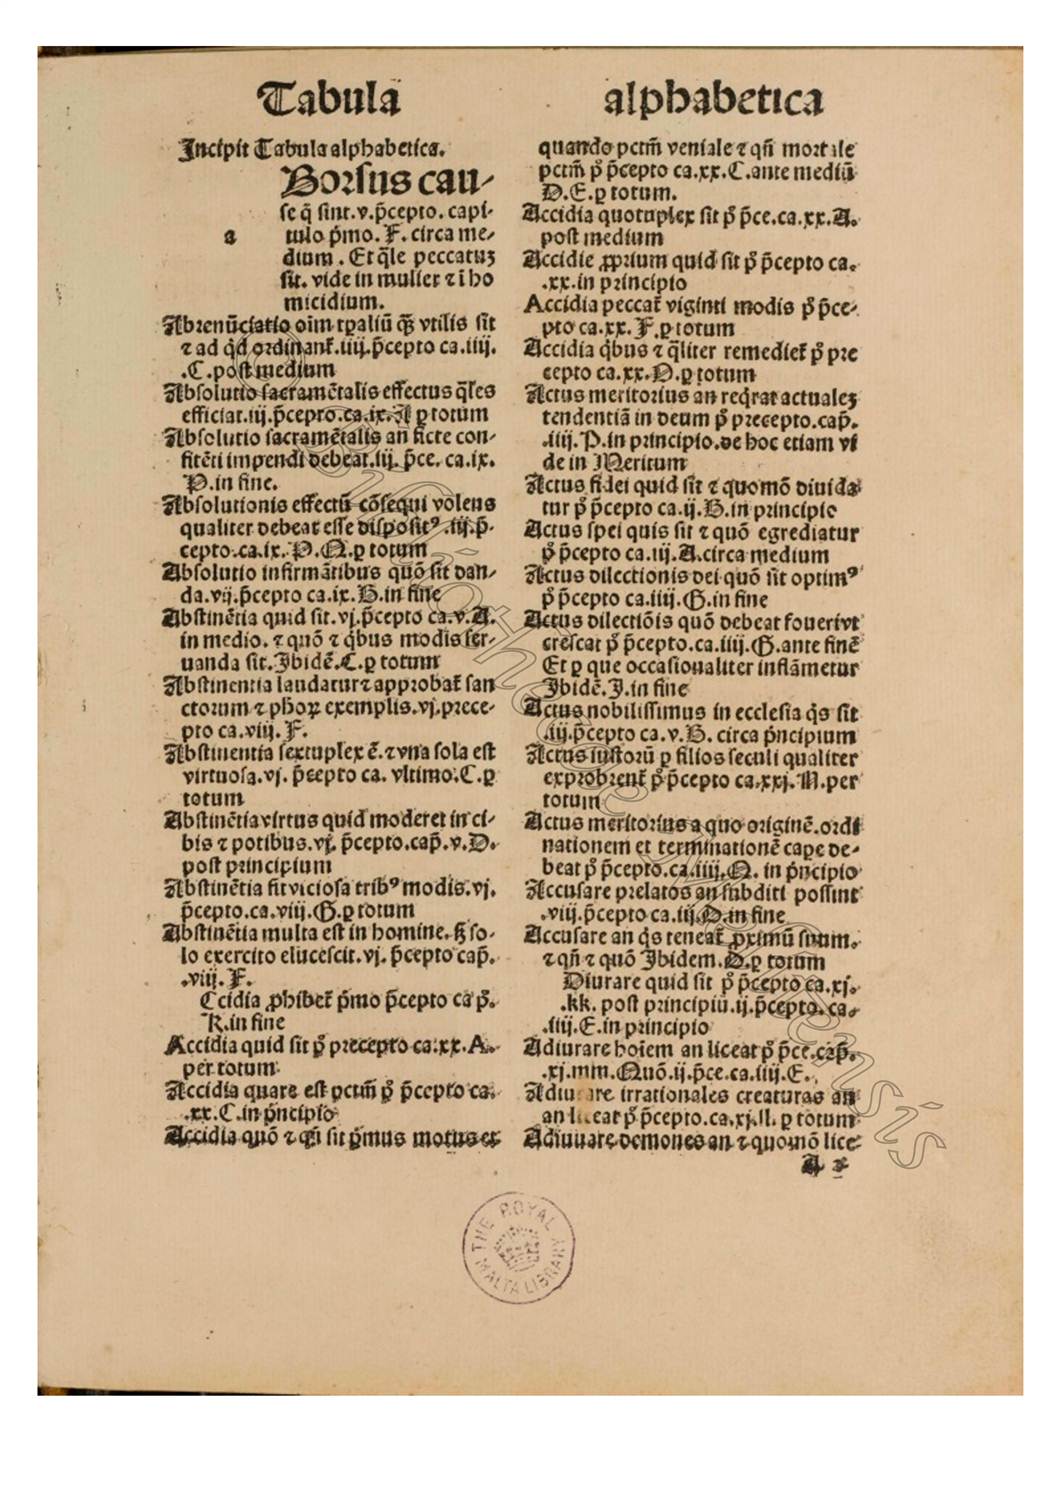 Tabula alphabetica
Incipit Tabula alphabetica.
Borsus cau-
se q̄ sint.v.p̄cepto. capi-
a tulo p̄mo. F. circa me-
dium. Et q̄le peccatuꝫ
sit. vide in mulier ⁊ ī ho
micidium.
Abrenūciatio oīm tꝑaliū qꝫ vtilis sit
⁊ ad qd̄ ordinant̄.iiij.p̄cepto ca.iiij.
.C.post medium
Absolutio sacramētalis effectus q̄les
efficiat.iij.p̄cepto.ca.ix.A ꝑ totum
Absolutio sacramētalis an ficte con-
fitēti impendi debeat.iij. p̄ce. ca.ix.
P.in fine.
Absolutionis effectū cōsequi volens
qualiter debeat esse disposit⁹.iij.p̄-
cepto.ca.ix.P.Q.ꝑ totum
Absolutio infirmātibus quō sit dan-
da.vij.p̄cepto ca.ix.B.in fine
Abstinētia quid sit.vj.p̄cepto ca.v.A.
in medio. ⁊ quō ⁊ q̄bus modis ser-
uanda sit.Ibidē.C.ꝑ totum
Abstinentia laudatur⁊ approbat̄ san
ctorum ⁊ ph̄oꝝ exemplis.vj.prece-
pto ca.viij. F.
Abstinentia sextuplex ē.⁊ vna sola est
virtuosa.vj. p̄cepto ca. vltimo.C.ꝑ
totum
Abstinētia virtus quid moderet in ci-
bis ⁊ potibus.vj. p̄cepto.cap̄.v.D.
post principium
Abstinētia fit viciosa trib⁹ modis.vj.
p̄cepto.ca.viij.G.ꝑ totum
Abstinētia multa est in homine. sꝫ so-
lo exercito elucescit.vj. p̄cepto cap̄.
.viij. F.
Ccidia ꝓhibet̄ p̄mo p̄cepto ca p̄.
K.in fine
Accidia quid sit p̄ precepto ca.xx.A.
per totum
Accidia quare est pctm̄ p̄ p̄cepto ca.
.xx.C.in p̄ncipio
Accidia quō ⁊ qn̄ sit p̄mus motus et
quando pctm̄ veniale ⁊ qn̄ mortale
pctm̄ p̄ p̄cepto ca.xx.C.ante mediū
D.E.ꝑ totum.
Accidia quotuplex sit p̄ p̄ce.ca.xx.A.
post medium
Accidie ꝓprium quid sit p̄ p̄cepto ca.
.xx.in principio
Accidia peccat̄ viginti modis p̄ p̄ce-
pto ca.xx. F.ꝑ totum
Accidia q̄bus ⁊ q̄liter remediet̄ p̄ pre
cepto ca.xx.D.ꝑ totum
Actus meritorius an req̄rat actualeꝫ
tendentiā in deum p̄ precepto.cap̄.
.iiij.P.in principio.de hoc etiam vi
de in Meritum
Actus fidei quid sit ⁊ quomō diuida
tur p̄ p̄cepto ca.ij.B.in principio
Actus spei quis sit ⁊ quō egrediatur
p̄ p̄cepto ca.iij.A.circa medium
Actus dilectionis dei quō sit optim⁹
p̄ p̄cepto ca.iiij.G.in fine
Actus dilectiōis quō debeat foueri vt
crescat p̄ p̄cepto.ca.iiij.G.ante finē
Et ꝑ que occasionaliter inflāmetur
Ibidē.I.in fine
Actus nobilissimus in ecclesia q̄s sit
.iij.p̄cepto ca.v.B. circa p̄ncipium
Actus iustorū ꝑ filios seculi qualiter
exprobrent̄ p̄ p̄cepto ca.xxj.M.per
totum
Actus meritorius a quo originē.ordi
nationem et terminationē cape de-
beat p̄ p̄cepto.ca.iiij.Q. in p̄ncipio
Accusare prelatos an subditi possint
.viij.p̄cepto ca.iij.D.in fine
Accusare an q̄s teneat̄ ꝓximū suum.
⁊ qn̄ ⁊ quō Ibidem.D.ꝑ totum
Diurare quid sit p̄ p̄cepto ca.xj.
.kk. post principiū.ij.p̄cepto. ca.
.iiij.E.in principio
Adiurare hoīem an liceat p̄ p̄ce.cap̄.
.xj.mm.Quō.ij.p̄ce.ca.iiij.E.
Adiurare irrationales creaturas an
an liceat p̄ p̄cepto.ca.xj.ll. ꝑ totum
Adiuuare demones an ⁊ quomō lice
A 2
THE ROYAL MALTA LIBRARY